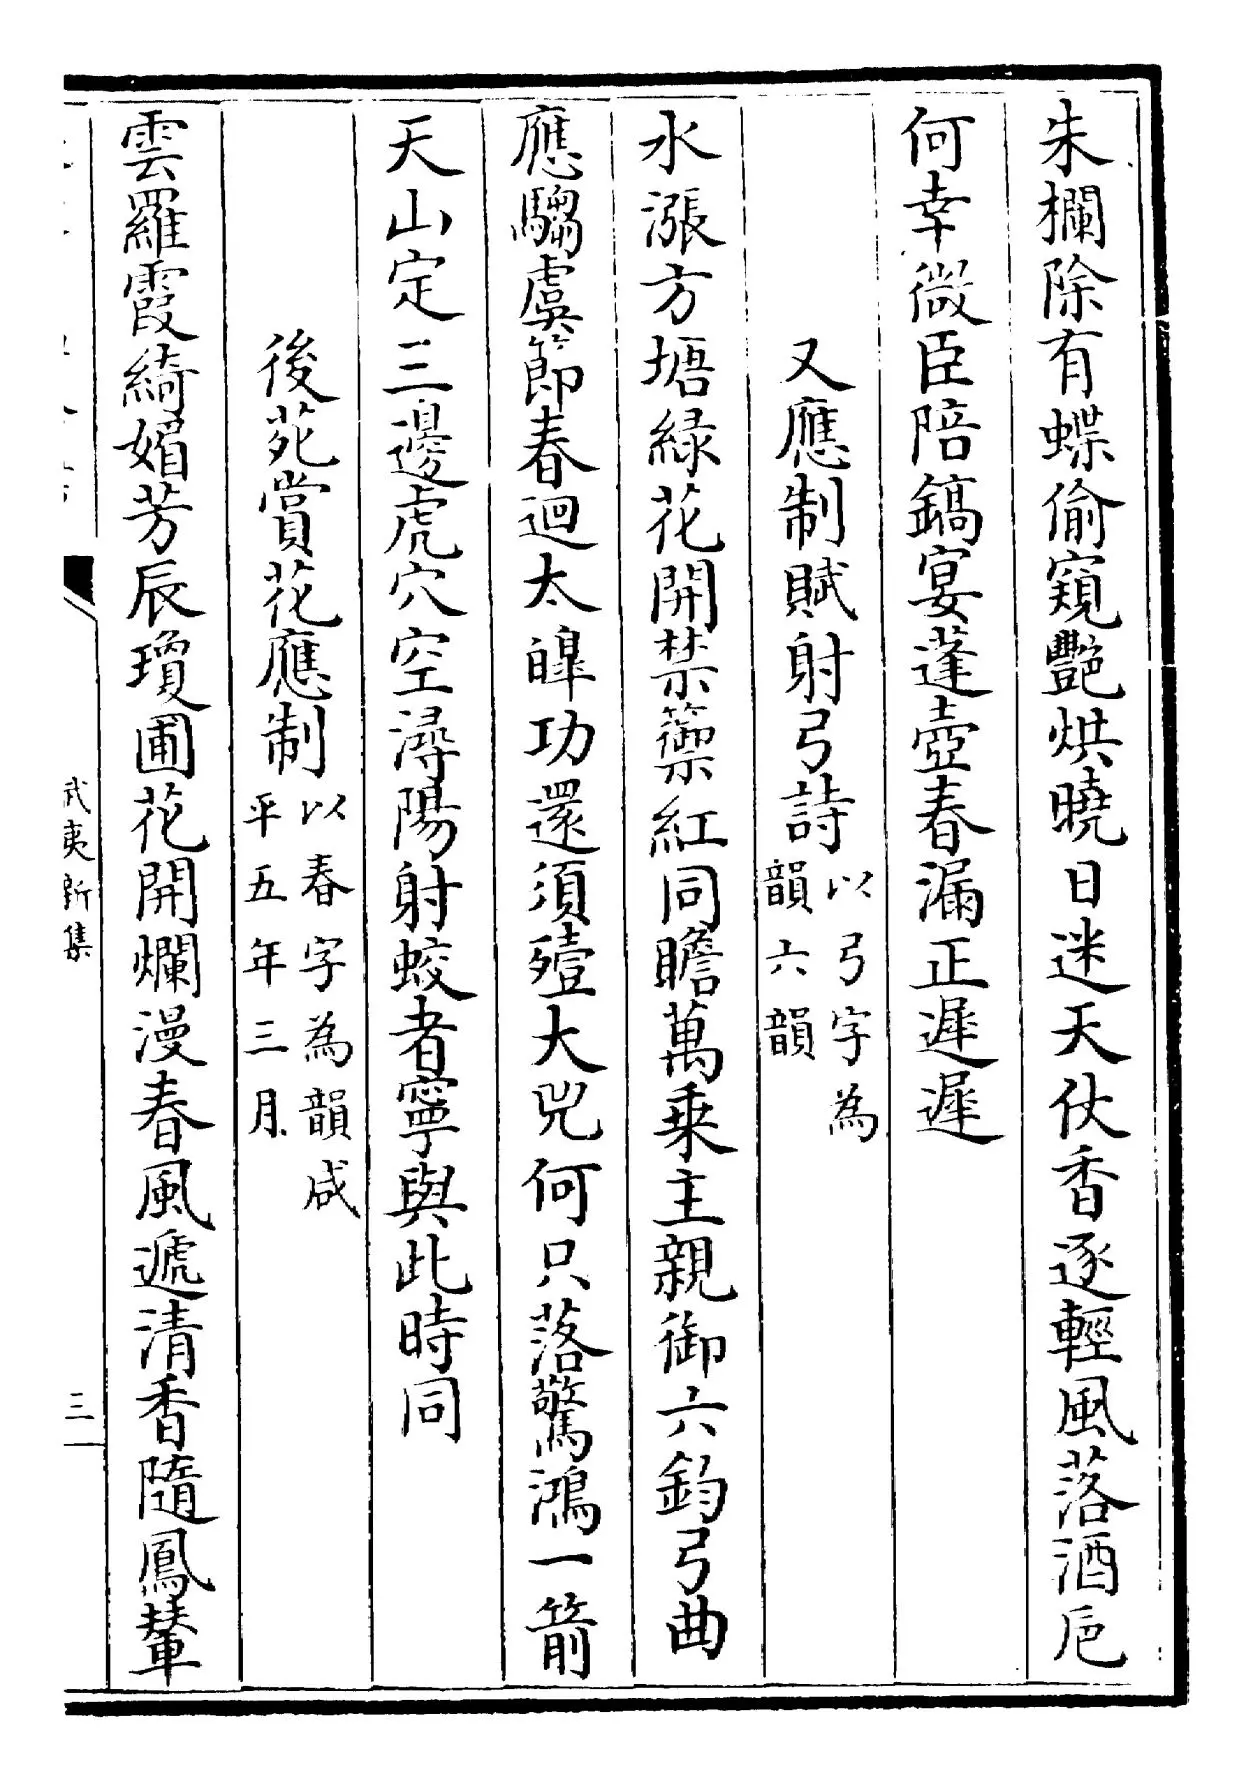 朱欄除有蝶偷窺艷烘曉日迷天仗香逐輕風落酒巵
何幸微臣陪鎬宴蓬壺春漏正遲遲
又應制賦射弓詩以弓字為韻六韻
水漲方塘緑花開禁籞紅同瞻萬乗主親御六鈞弓曲
應騶虞節春迴太皥功還須殪大兕何只落驚鴻一箭
天山定三邊虎穴空潯陽射蛟者寧與此時同
後苑賞花應制以春字為韻咸平五年三月
雲羅霞綺媚芳辰瓊圃花開爛漫春風遞清香隨鳳輦
武夷新集
三